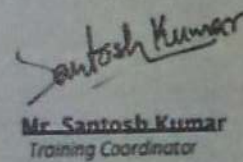 Santosh Kumar
Mr. Santosh Kumar
Training Coordinator